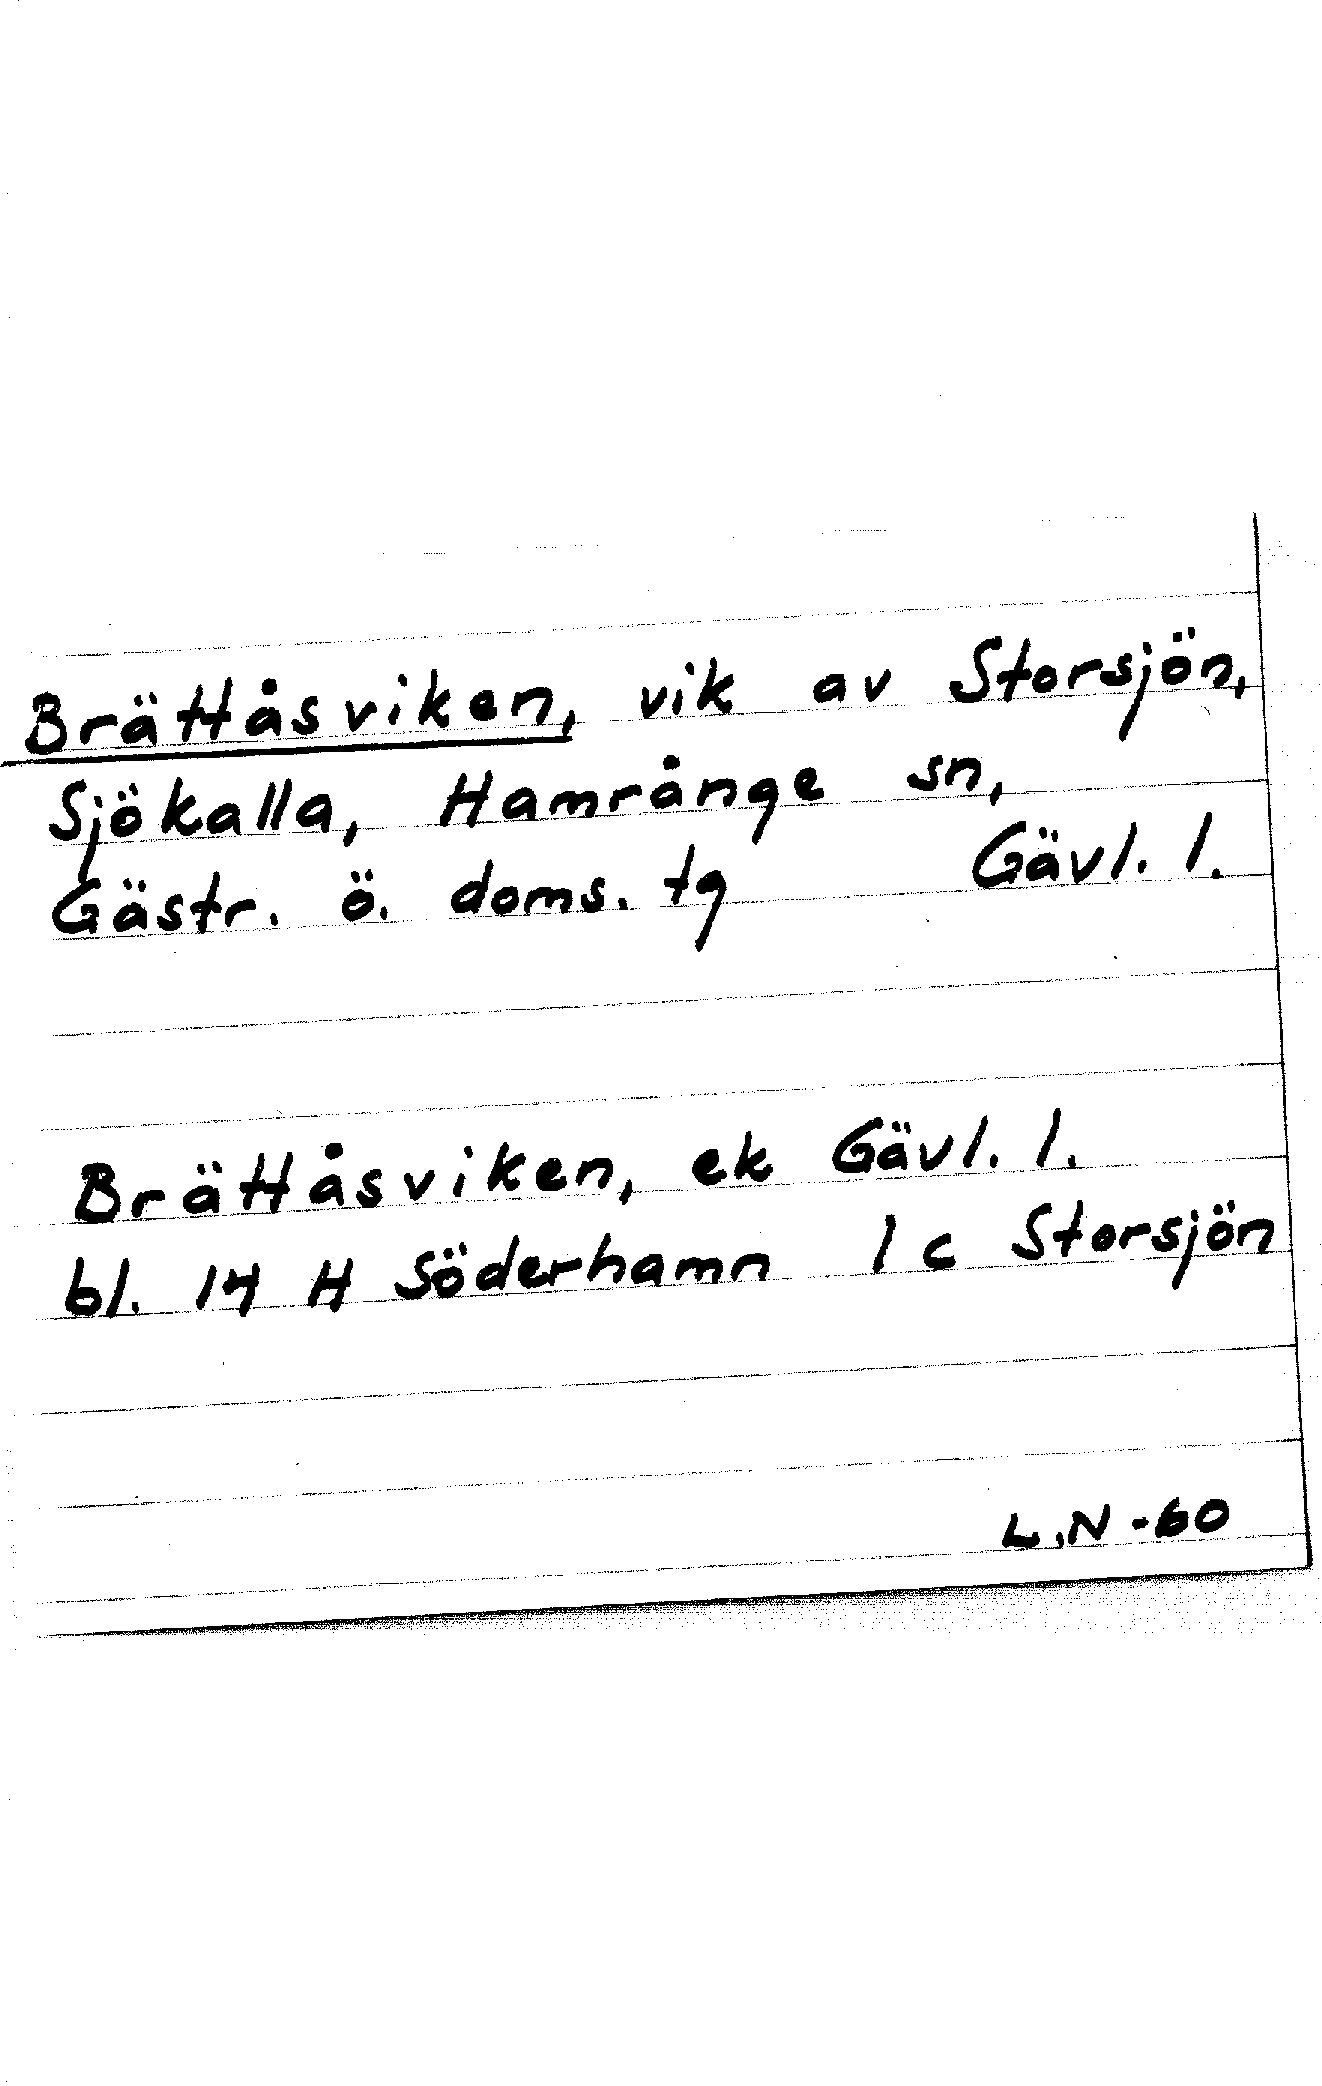 Brättåsviken, vik av Storsjön,
Sjökalla, Hamrånge sn,
Gästr. ö. doms. tg Gävl. l.
Brättåsviken, ek Gävl. l.
bl. 14 H Söderhamn 1 c Storsjön
L.N -60